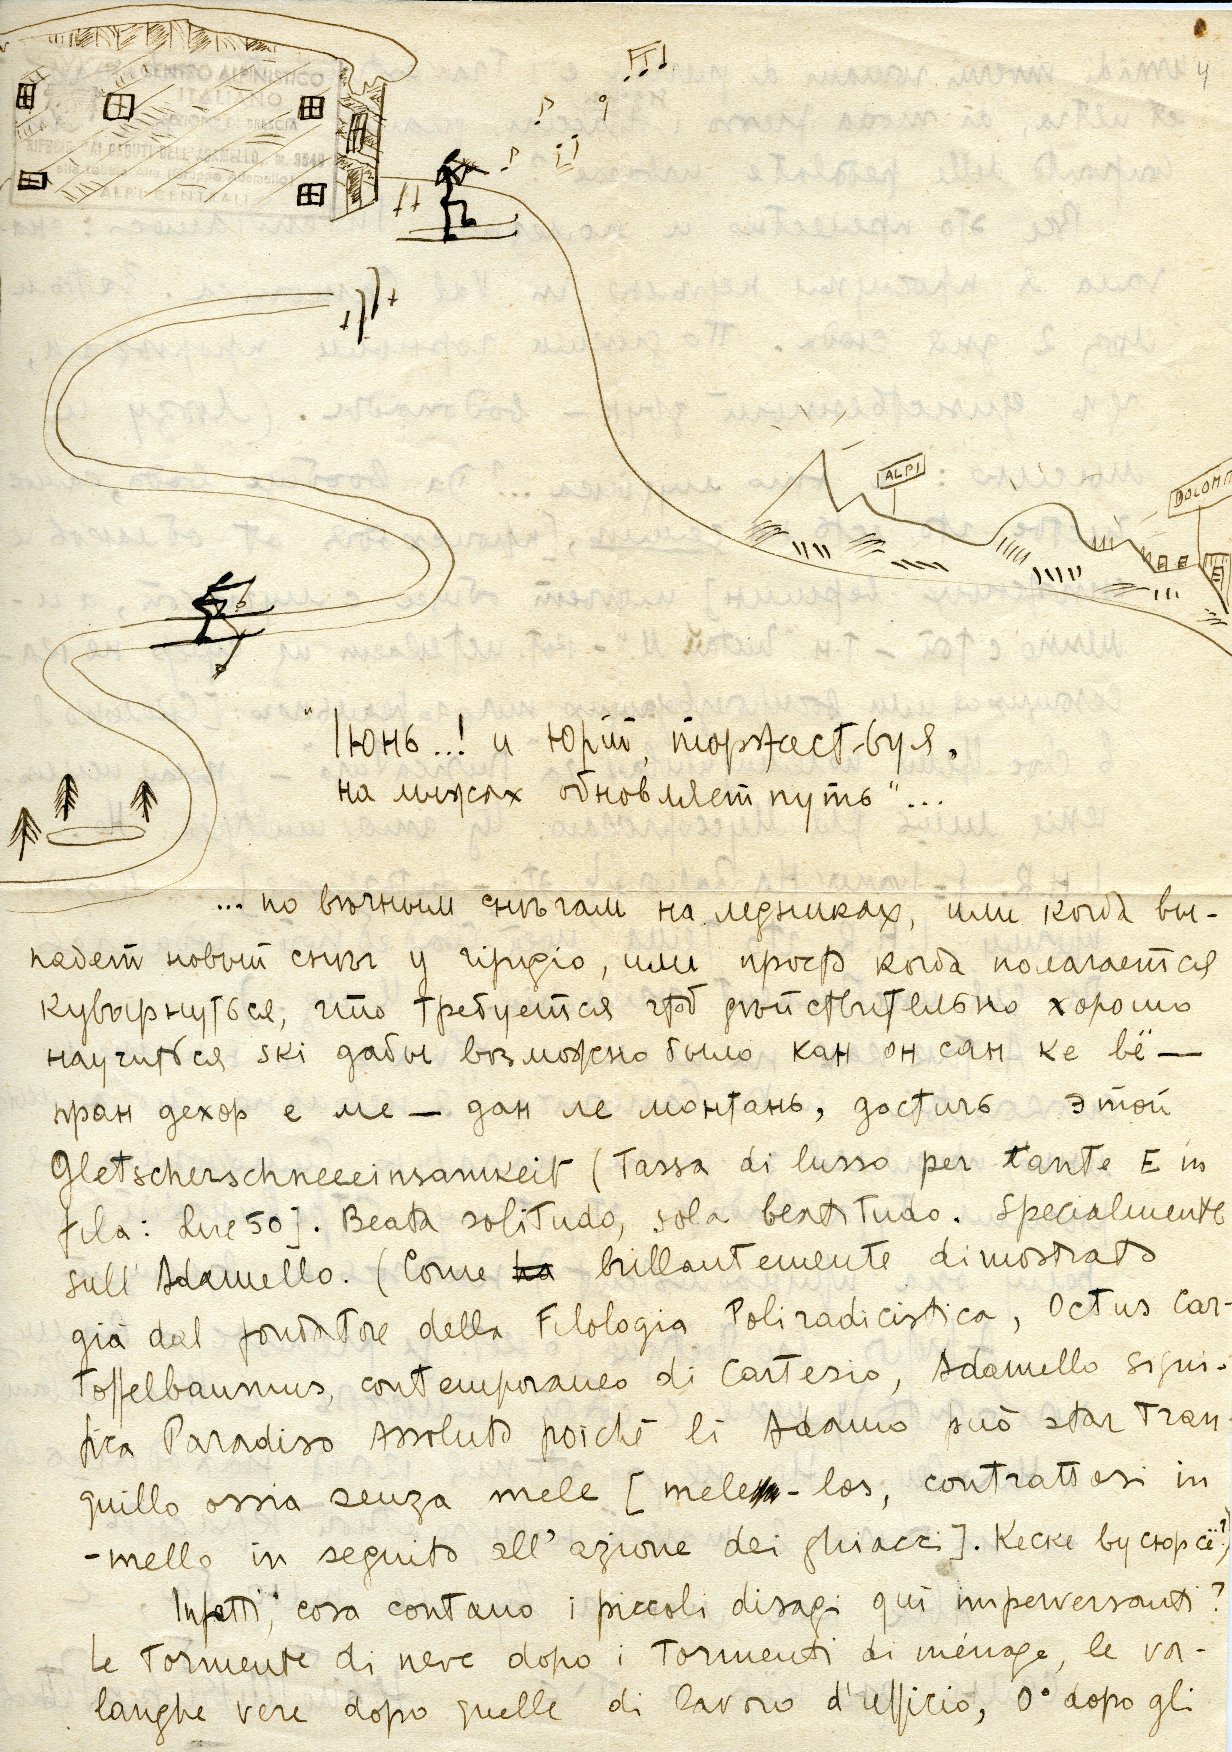 CENTRO ALPINISTICO
ITALIANO
BRESCIA
RIFUGIO "AI CADUTI DELL'ADAMELLO" m.
ALPI CENTRALI
4
ALPI
DOLOM
"Iюнь..! и Юрій, торжествуя,
на лыжах обновляет путь"...
... по вѣчным снѣгам на ледниках, или когда вы-
падет новый снѣг у rifugio, или просто когда полагается
кувырнуться, что требуется чтоб дѣйствительно хорошо
научиться ski дабы возможно было кан он сан ке вё—
пран дехор е ме — дан ле монтань, достичь этой
Gletscherschneeeinsamkeit (Tassa di lusso per tante E in
fila: Lire 50]. Beata solitudo, sola beatitudo. Specialmente
sull'Adamello. (Come ha brillantemente dimostrato
già dal fondatore della Filologia Poliradicistica, Octus Car-
toffelbaumus, contemporaneo di Cartesio, Adamello signi-
fica Paradiso Assoluto poiché lì Adamo può star tran-
quillo ossia senza mele [mele-los, contrattosi in
-mello in seguito all'azione dei ghiacci]. Кеске ву
Infatti, cosa contano i piccoli disagi qui imperversanti?
Le tormente di neve dopo i tormenti di ménage, le va-
langhe vere dopo quelle di lavoro d'ufficio, 0° dopo gli